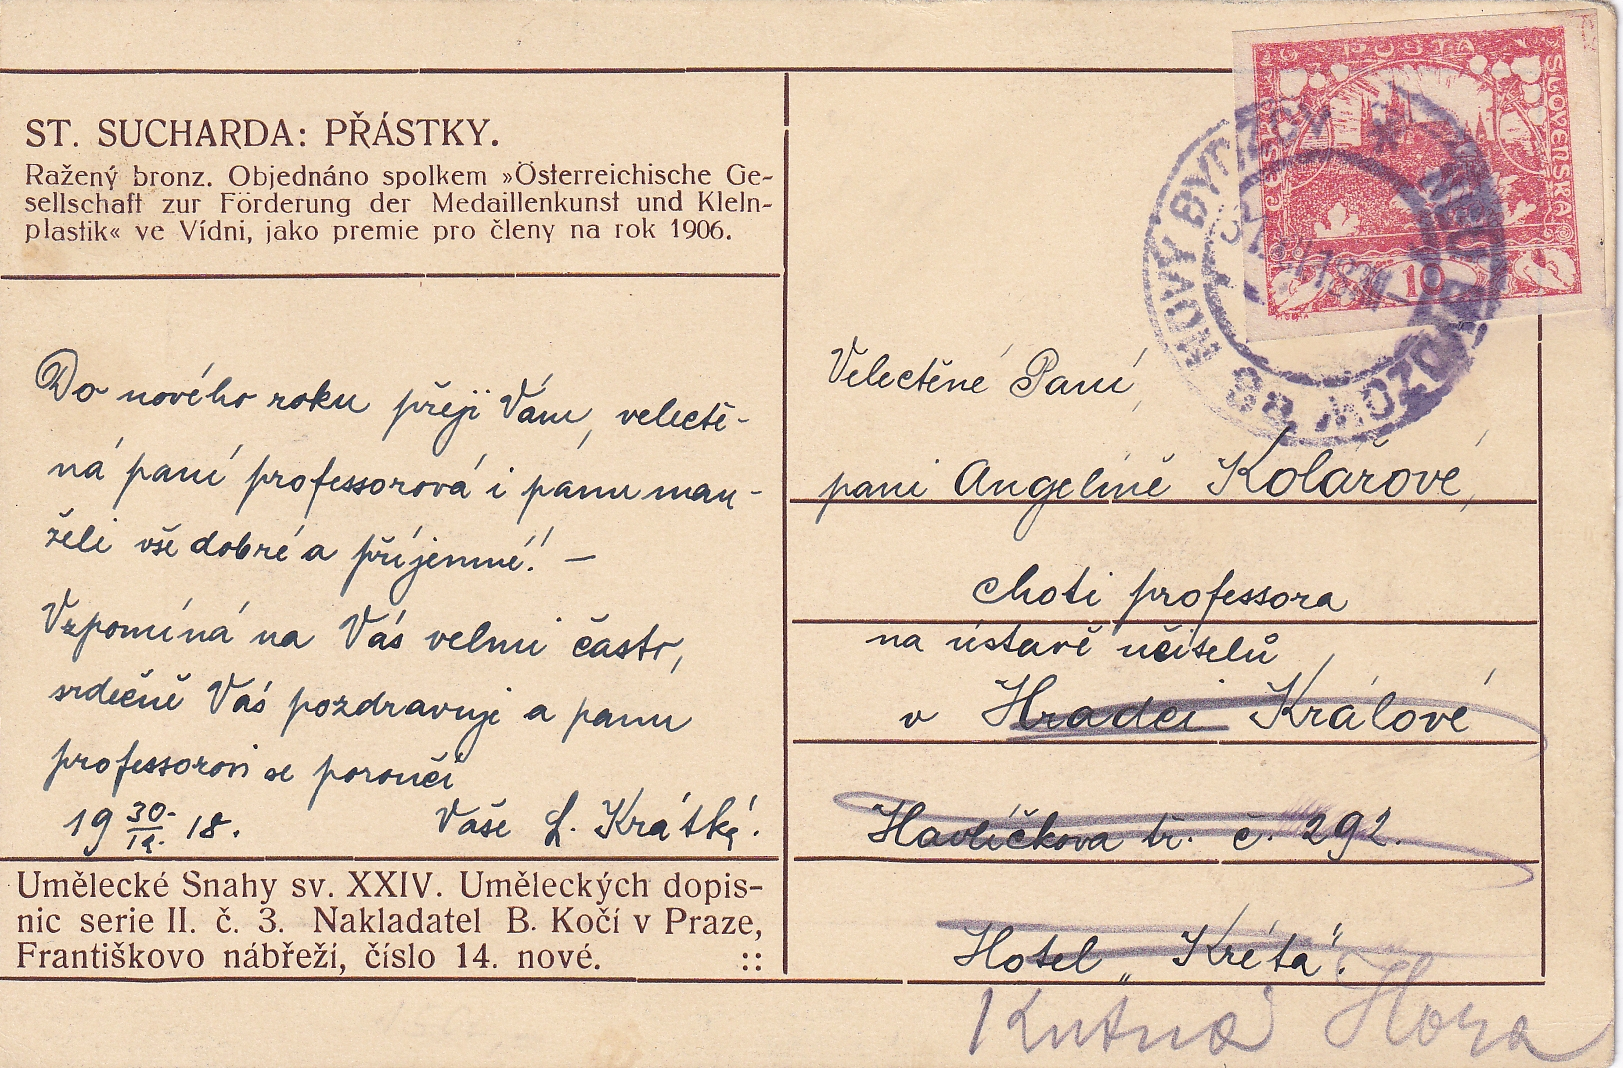 ST. SUCHARDA: PŘÁSTKY.
Ražený bronz. Objednáno spolkem »Österreichische Ge-
sellschaft zur Förderung der Medaillenkunst und Klein-
plastik« ve Vídni, jako premie pro členy na rok 1906.
Do nového roku přeji Vám, velectě-
ná paní professorová i pánu man-
želi vše dobré a příjemné! —
Vzpomíná na Vás velmi často,
srdečně Vás pozdravuje a panu
professorovi se poroučí
19 30./12. 18.
Vaše L. Krátká.
Umělecké Snahy sv. XXIV. Uměleckých dopis-
nic serie II. č. 3. Nakladatel B. Kočí v Praze,
Františkovo nábřeží, číslo 14. nové. ::
POŠTA
ČESKO
SLOVENSKÁ
10
NOVÝ BYDŽOV
8a
Velectěné Paní,
paní Angelině Kolářové,
choti professora
na ústavě učitelů
v Hradci Králové
Havlíčkova tř. č. 292.
Hotel „Kréta“.
Kutná Hora